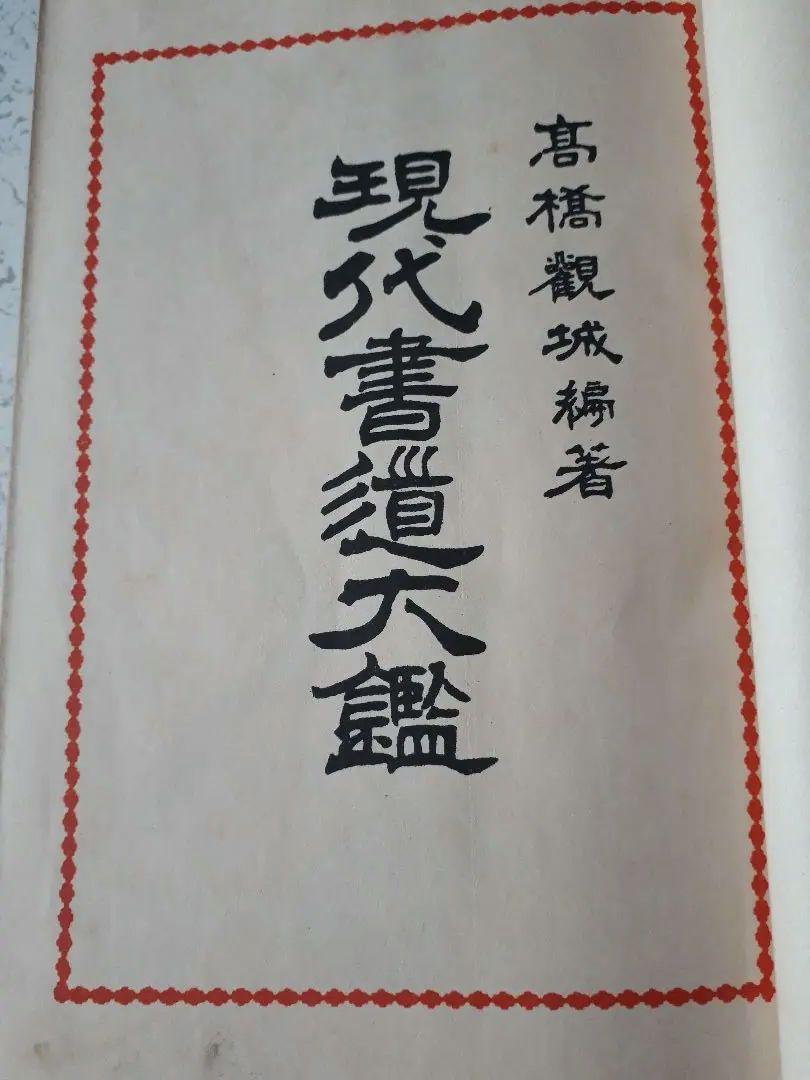 髙橋觀城編著
現代書道大鑑